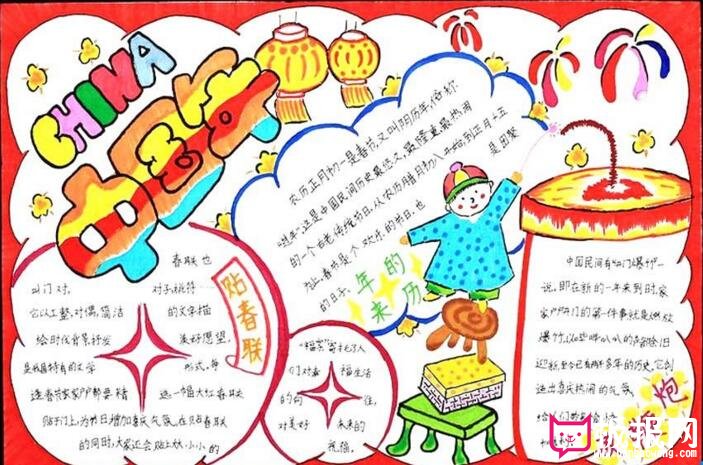 CHINA
中国年
农历正月初一是春节,又叫阴历年,俗称
"过年".这是中国民间历史最悠久,最隆重,最热闹
的一个古老传统节日.从农历腊月初八开始,到正月十五
为止.春节是个欢乐的节日,也
是团聚
的日子.
年的
来历
贴春联
春联也
叫门对,
对子,桃符
它以工整,对偶,简洁
的文字描
绘时代背景,抒发
美好愿望.
是我国特有的文学
形式.每
逢春节家家户户都要精
选一幅大红春联
贴于门上,为节日增加喜庆气氛.在贴春联
的同时,大家还会贴上大小小的
寄托了人
们对幸
福生活
的向
往,
对美好
未来的
祝福.
中国民间有"开门爆竹"一
说.即在新的一年来到时,家
家户户开门的第一件事就是燃放
爆竹,以
的爆竹声除旧
迎新.至今已有两千多年的历史.它创
造出喜庆热闹的气氛,
炮